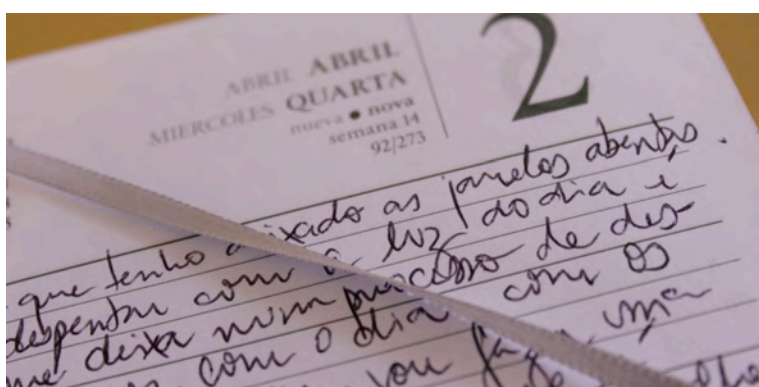 ABRIL ABRIL
MIERCOLES QUARTA
nueva • nova
semana 14
92/273
2
que tenho deixado as janelas abertas.
despertar com a luz do dia e
me deixa num processo de des-
com o dia com os
vou faça uma